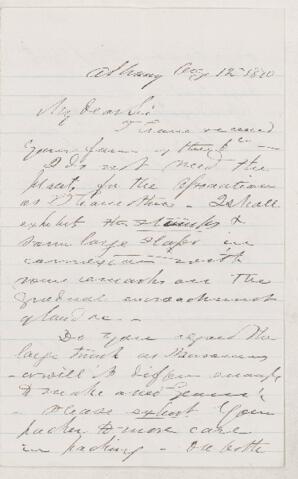 Albany Aug 12th 1870
My dear Sir
I have received
your favor of the
I do not need the
for the Association
as I have this. I shall
exhibit the stumps &
some large slabs in
connection with
some remarks on the
gradual encroachment
of land &c. —
Do you regard the
large trunk as
enough
to make a new
— Please exhort your
packer to more care
in packing —